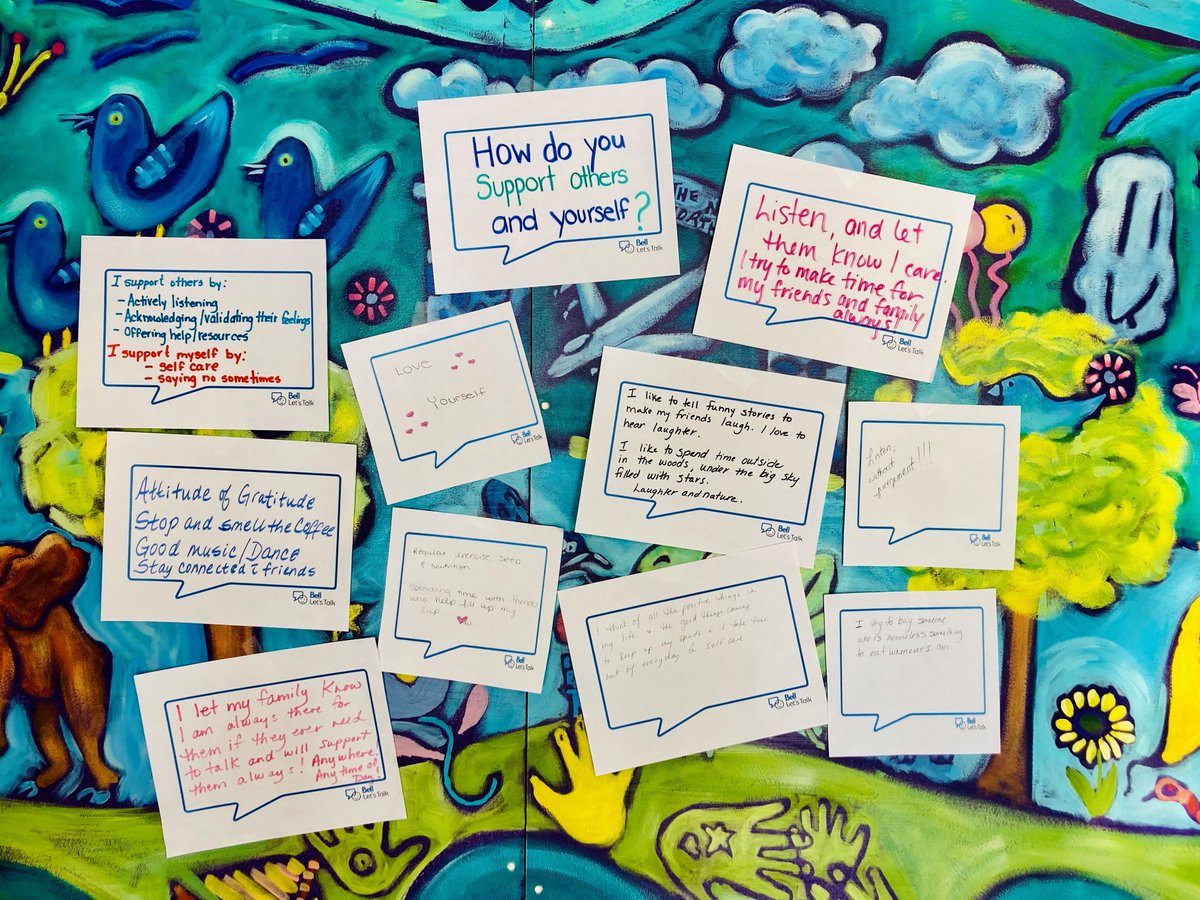 How do you
Support others
and yourself?
Bell
Let's Talk
Listen, and let
them know I care.
I try to make time for
my friends and family
always!
Bell
Let's Talk
I support others by:
- Actively listening
- Acknowledging/validating their feelings
- Offering help/resources
I support myself by:
- self care
- saying no sometimes
Bell
Let's Talk
Love
Yourself
Bell
Let's Talk
I like to tell funny stories to
make my friends laugh. I love to
hear laughter.
I like to spend time outside
in the woods, under the big sky
filled with stars.
Laughter and nature.
Bell
Let's Talk
Listen,
without
judgement!!!
Bell
Let's Talk
Attitude of Gratitude
Stop and smell the Coffee
Good music/Dance
Stay connected c̄ friends
Bell
Let's Talk
Regular exercise, sleep
& nutrition
Spending time with friends
who help fill up my
cup
Bell
Let's Talk
I think of all the positive things in
my life & the good things coming
to keep up my spirits & I take time
out of everyday for self care.
Bell
Let's Talk
I try to buy someone
who is homeless something
to eat whenever I can
Bell
Let's Talk
I let my family know
I am always there for
them if they ever need
to talk and will support
them always! Anywhere!
Any time of
Day!
Bell
Let's Talk